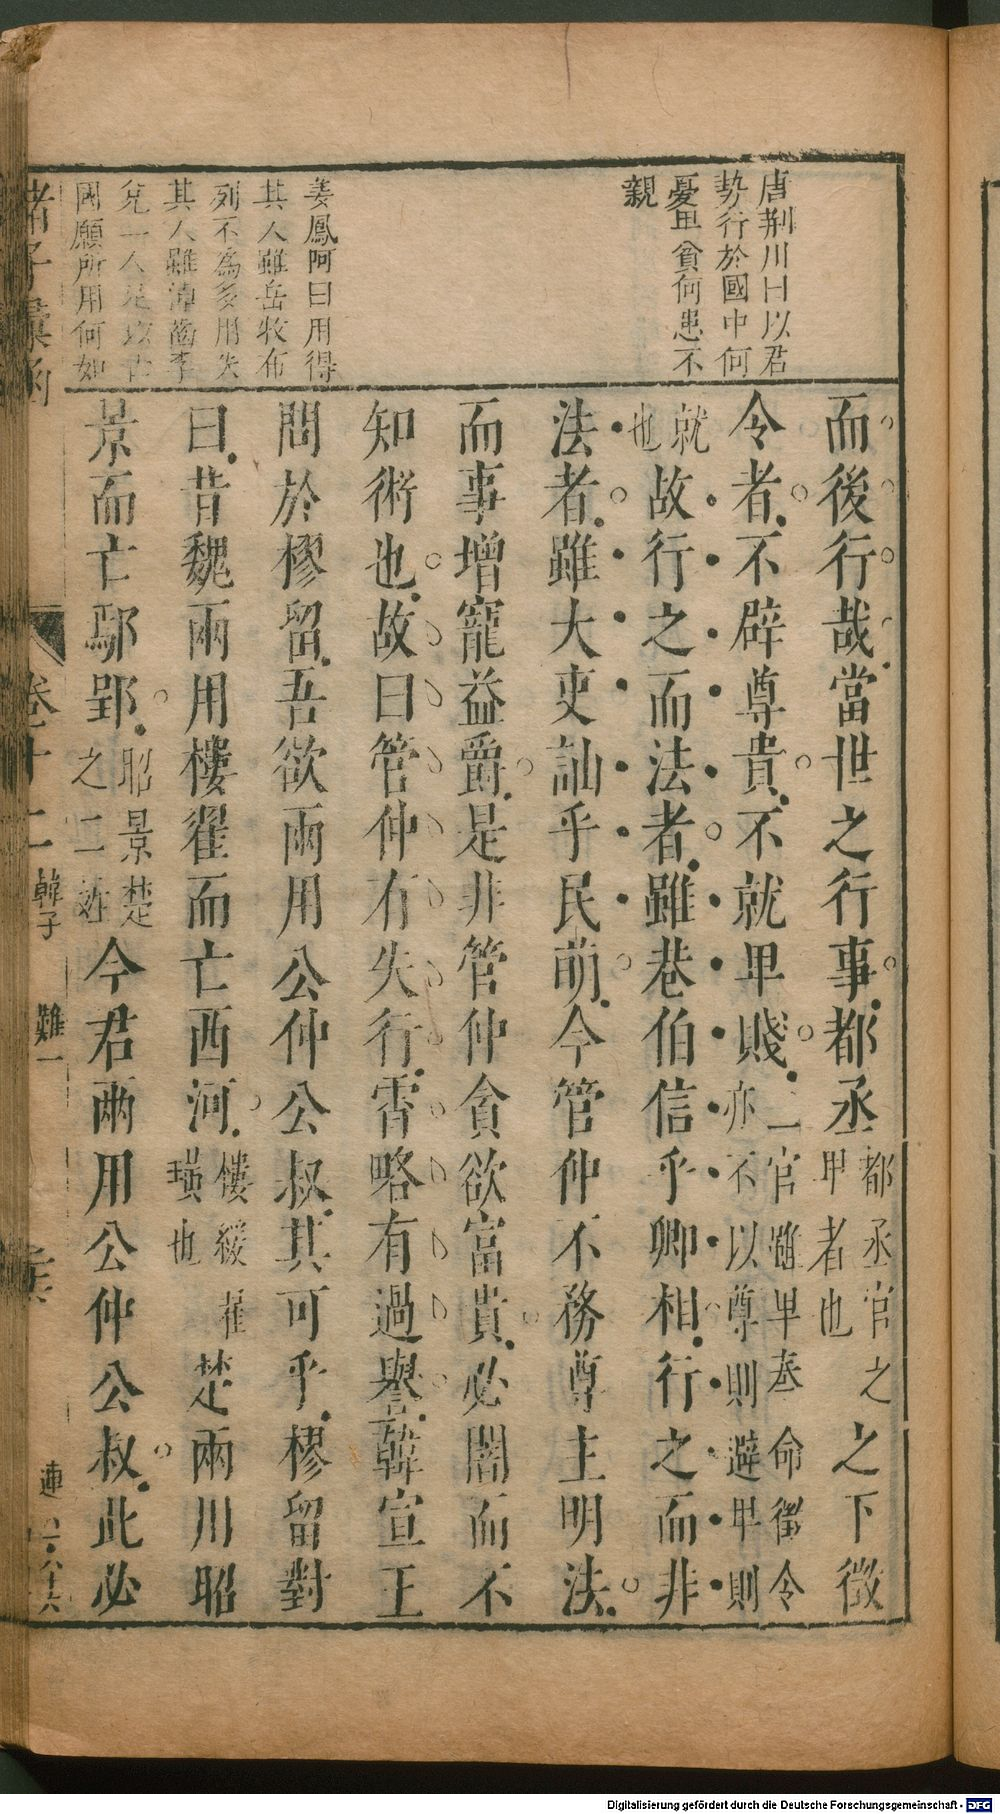 唐荆川曰以君
勢行於國中何
憂卑貧何患不
親
姜鳳阿曰用得
其人雖岳牧布
列不為多用失
其人雖淖齒李
兌一人足以亡
國願所用何如
而後行哉當世之行事都丞都丞官之卑者也之下徵
令者不辟尊貴不就卑賤二官雖卑奉命徵令亦不以尊則避卑則
就也故行之而法者雖巷伯信乎卿相行之而非
法者雖大吏訕乎民萌今管仲不務尊主明法
而事增寵益爵是非管仲貪欲富貴必闇而不
知術也故曰管仲有失行霄略有過譽韓宣王
問於樛留吾欲兩用公仲公叔其可乎樛留對
曰昔魏兩用樓翟而亡西河樓緩翟璜也楚兩用昭
景而亡鄢郢昭景楚之二姓今君兩用公仲公叔此必
諸子彙函
卷十二
韓子
難一
Digitalisierung gefördert durch die Deutsche Forschungsgemeinschaft - DFG